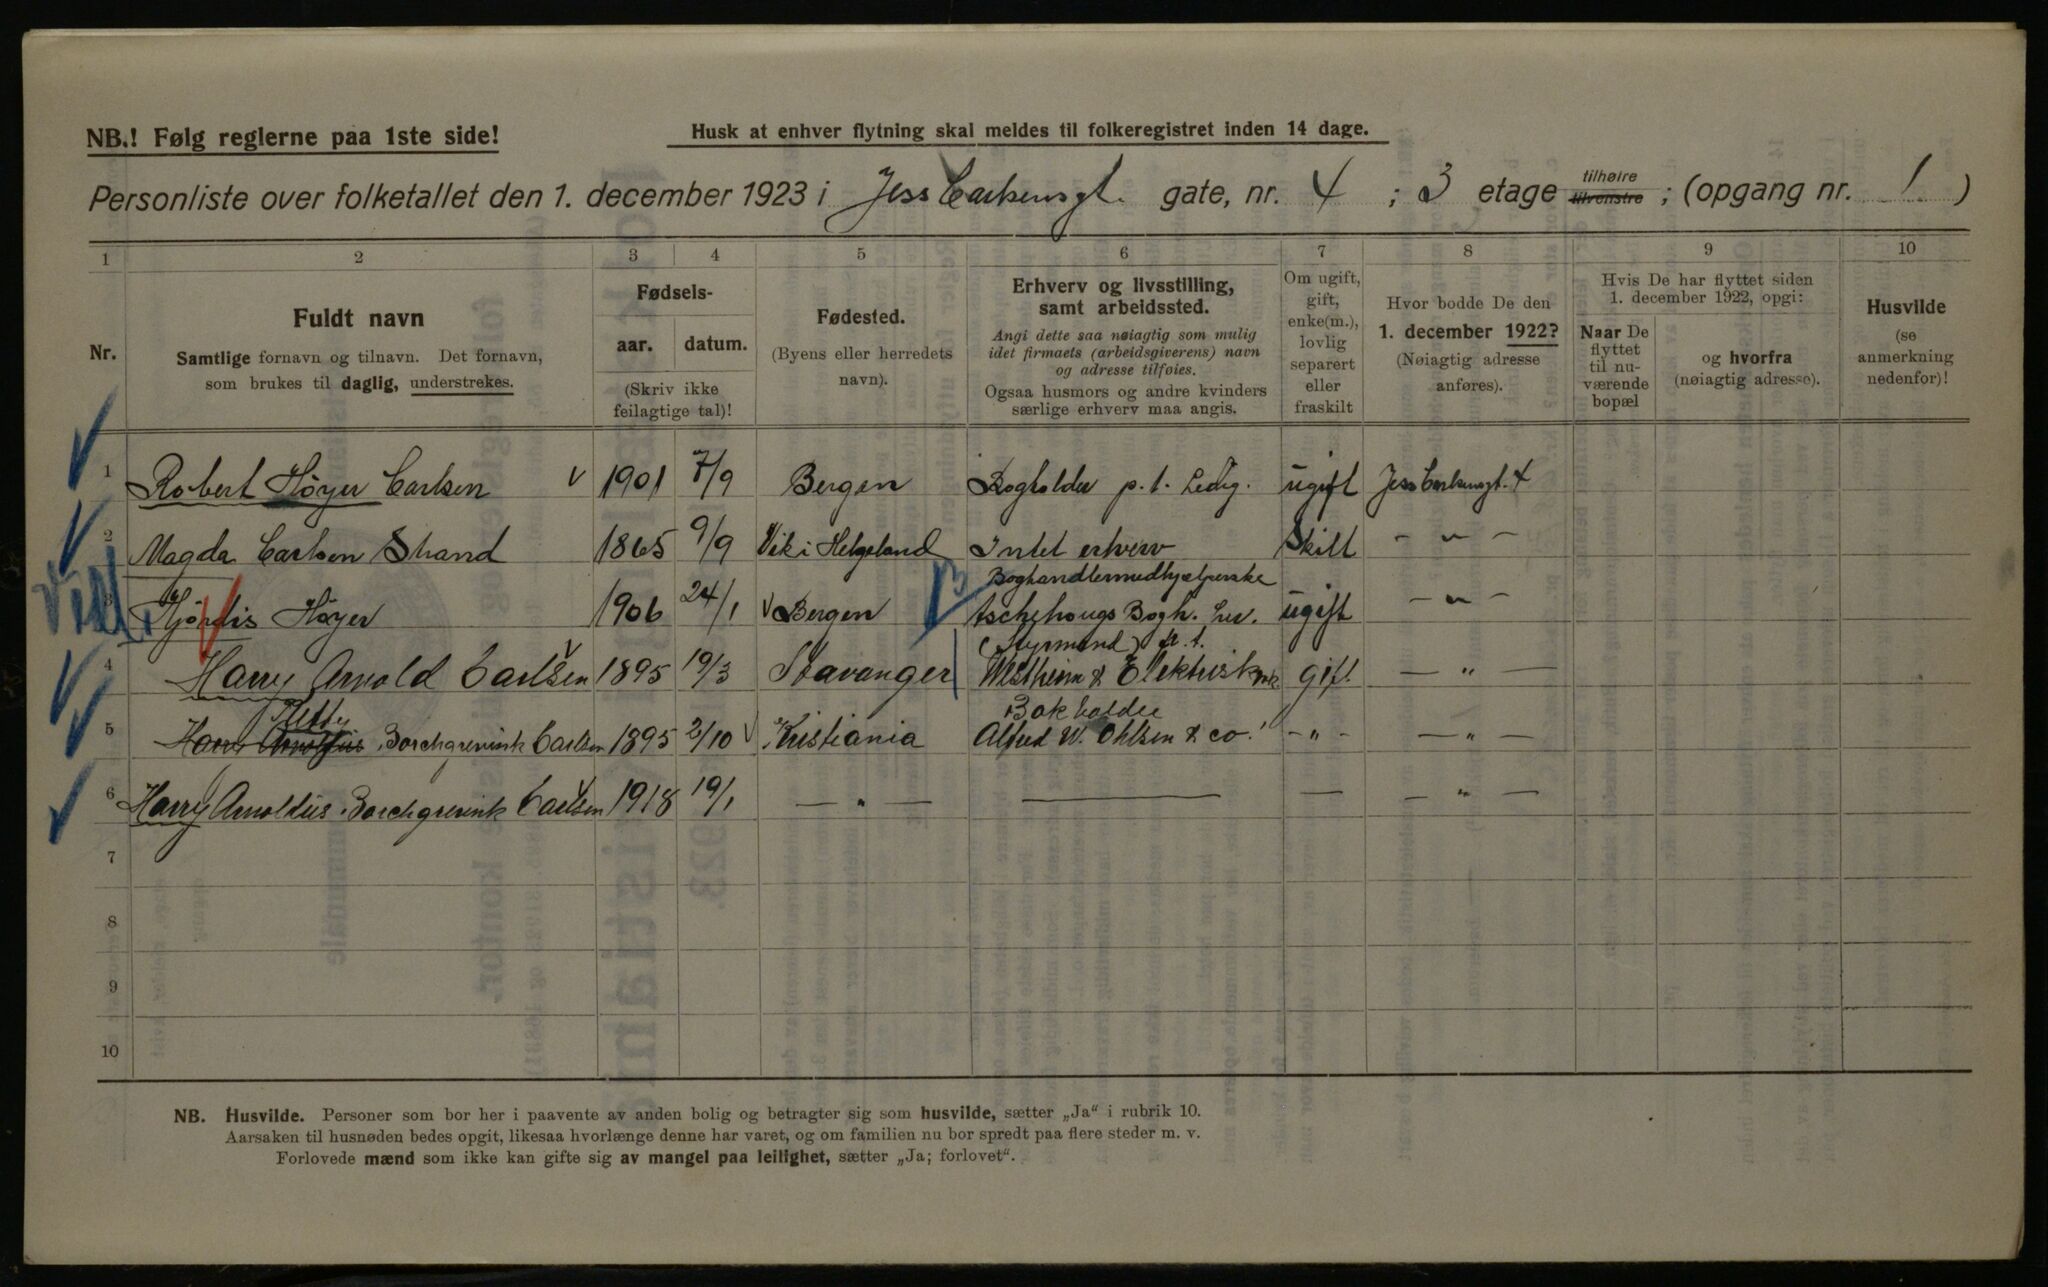 NB.! Følg reglerne paa 1ste side!
Husk at enhver flytning skal meldes til folkeregistret inden 14 dage.
Personliste over folketallet den 1. december 1923 i Jess Carlsensgt. gate, nr. 4 ; 3 etage tilhøire tilvenstre ; (opgang nr. 1 )
1 2 3 4 5 6 7 8 9 10
Nr.
Fuldt navn
Samtlige fornavn og tilnavn. Det fornavn,
som brukes til daglig, understrekes.
Fødsels-
aar. datum.
(Skriv ikke
feilagtige tal)!
Fødested.
(Byens eller herredets
navn).
Erhverv og livsstilling,
samt arbeidssted.
Angi dette saa nøiagtig som mulig
idet firmaets (arbeidsgiverens) navn
og adresse tilføies.
Ogsaa husmors og andre kvinders
særlige erhverv maa angis.
Om ugift,
gift,
enke(m.),
lovlig
separert
eller
fraskilt
Hvor bodde De den
1. december 1922?
(Nøiagtig adresse
anføres).
Hvis De har flyttet siden
1. december 1922, opgi:
Naar De
flyttet
til nu-
værende
bopæl
og hvorfra
(nøiagtig adresse).
Husvilde
(se
anmerkning
nedenfor)!
1 Robert Höyer Carlsen 1901 7/9 Bergen Bogholder p.t. Ledig. ugift Jess Carlensgt. 4
2 Magda Carlsen Strand 1865 9/9 Vik i Helgeland Intet erhverv Skilt - " -
Boghandlermedhjelperske
3 Hjördis Höyer 1906 24/1 Bergen Aschehougs Bogh. ugift - " -
(Styrmand) p.t.
4 Harry Arnold Carlsen 1895 19/3 Stavanger gift — " —
Bokholder
5 Harry Arnoldius Borchgrevink Carlsen 1895 2/10 Kristiania Alfred W. Ohlsen & co. - " - — " —
6 Harry Arnoldius Borchgrevink Carlsen 1918 19/1 — " — — — — " —
7
8
9
10
NB. Husvilde. Personer som bor her i paavente av anden bolig og betragter sig som husvilde, sætter „Ja“ i rubrik 10.
Aarsaken til husnøden bedes opgit, likesaa hvorlænge denne har varet, og om familien nu bor spredt paa flere steder m. v.
Forlovede mænd som ikke kan gifte sig av mangel paa leilighet, sætter „Ja; forlovet“.